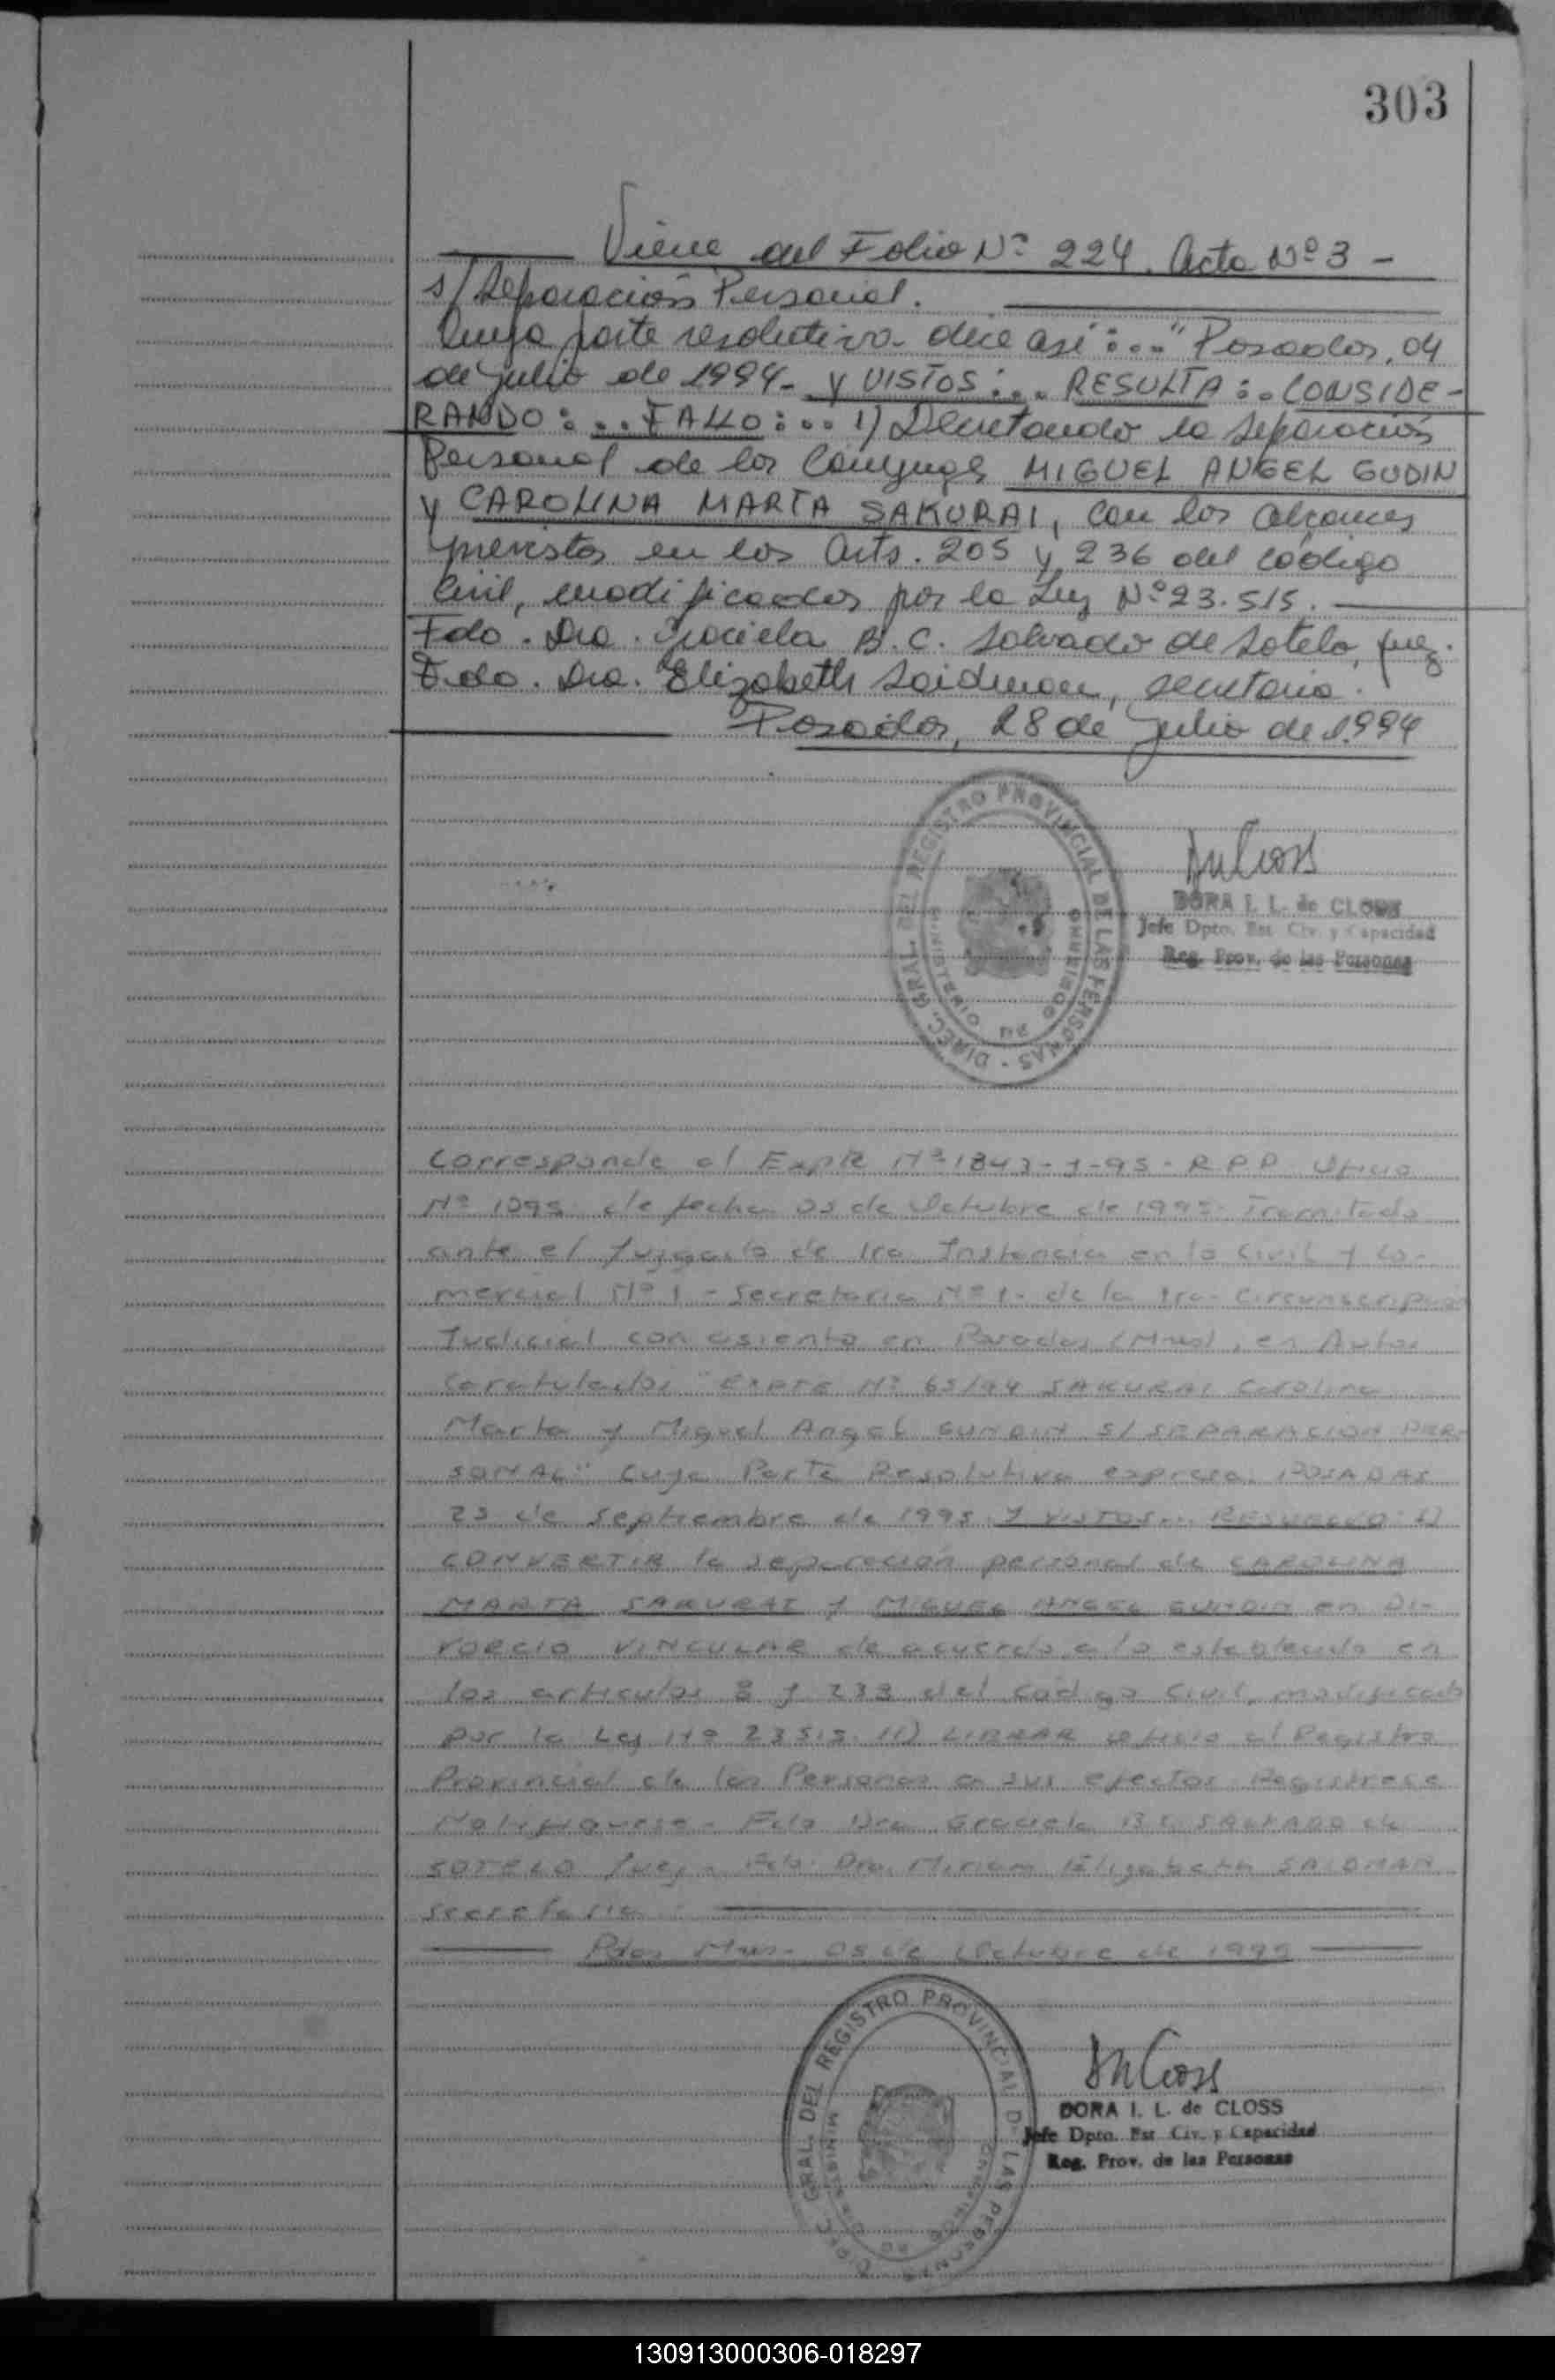 303
Viene del Folio Nº 224. Acta Nº 3 -
s/ Separación Personal.
Cuya parte resolutiva dice así:... "Posadas, 04
de julio de 1994- Y VISTOS:... RESULTA:.. CONSIDE-
RANDO:... FALLO:... 1) Decretando la separación
Personal de los Conyuges MIGUEL ANGEL GUDIN
y CAROLINA MARTA SAKURAI, con los alcances
previstos en los Arts. 205 y 236 del Código
Civil, modificados por la Ley Nº 23.515.
Fdo. Dra. Graciela B. C. Salvado de Sotelo, juez.
Fdo. Dra. Elizabeth Saidman, secretaria.
Posadas, 28 de Julio de 1994
DIREC. GRAL. DEL REGISTRO PROVINCIAL DE LAS PERSONAS - MINISTERIO DE GOBIERNO
DORA I. L. de CLOSS
Jefe Dpto. Est Civ. y Capacidad
Reg. Prov. de las Personas
Corresponde al Expte Nº 1843-J-95- R P P Oficio
Nº 1095 de fecha 05 de Octubre de 1995 Tramitado
ante el Juzgado de 1ra Instancia en lo Civil y Co-
mercial Nº 1 - Secretaria Nº 1- de la 1ra- Circunscripción
Judicial con asiento en Posadas (Mnes), en Autos
Caratulados "EXPTE Nº 65/94 SAKURAI Carolina
Marta y Miguel Angel GUNDIN S/ SEPARACION PER
SONAL" cuya Parte Resolutiva expresa. POSADAS
23 de septiembre de 1995 Y VISTOS... RESUELVO: 1)
CONVERTIR la separación personal de CAROLINA
MARTA SAKURAI y MIGUEL ANGEL GUNDIN en DI-
VORCIO VINCULAR de acuerdo a lo establecido en
los articulos 8 y 238 del Código Civil, modificado
por la Ley Nº 23515. 11) LIBRAR oficio al Registro
Provincial de las Personas a sus efectos Registrese
Notifiquese - Fdo Dra Graciela B C SALVADO de
SOTELO Juez - Fdo. Dra. Miriam Elizabeth SAIDMAN
Secretaria.
Pdas Mnes- 05 de Octubre de 1995
DIREC. GRAL. DEL REGISTRO PROVINCIAL DE LAS PERSONAS MINISTERIO DE GOBIERNO
DORA I. L. de CLOSS
Jefe Dpto. Est Civ. y Capacidad
Reg. Prov. de las Personas
130913000306-018297